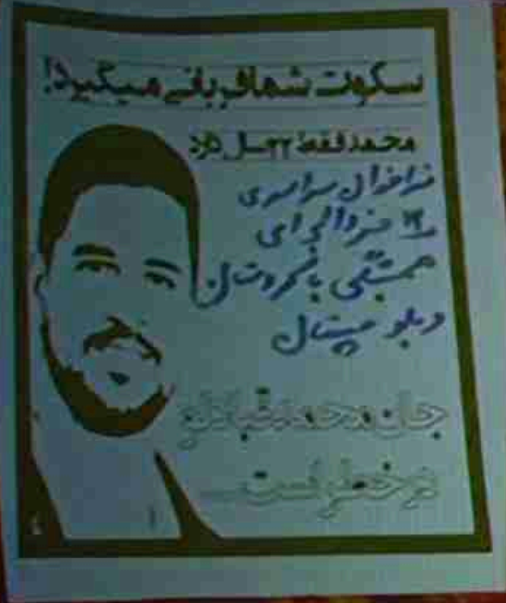 سکوت شما قربانی میگیرد!
محمد فقط ۲۳ سال دارد
فراخوان سراسری
برای
همبستگی با کردستان
و بلوچستان
جان محمد قبادلو
در خطر است...